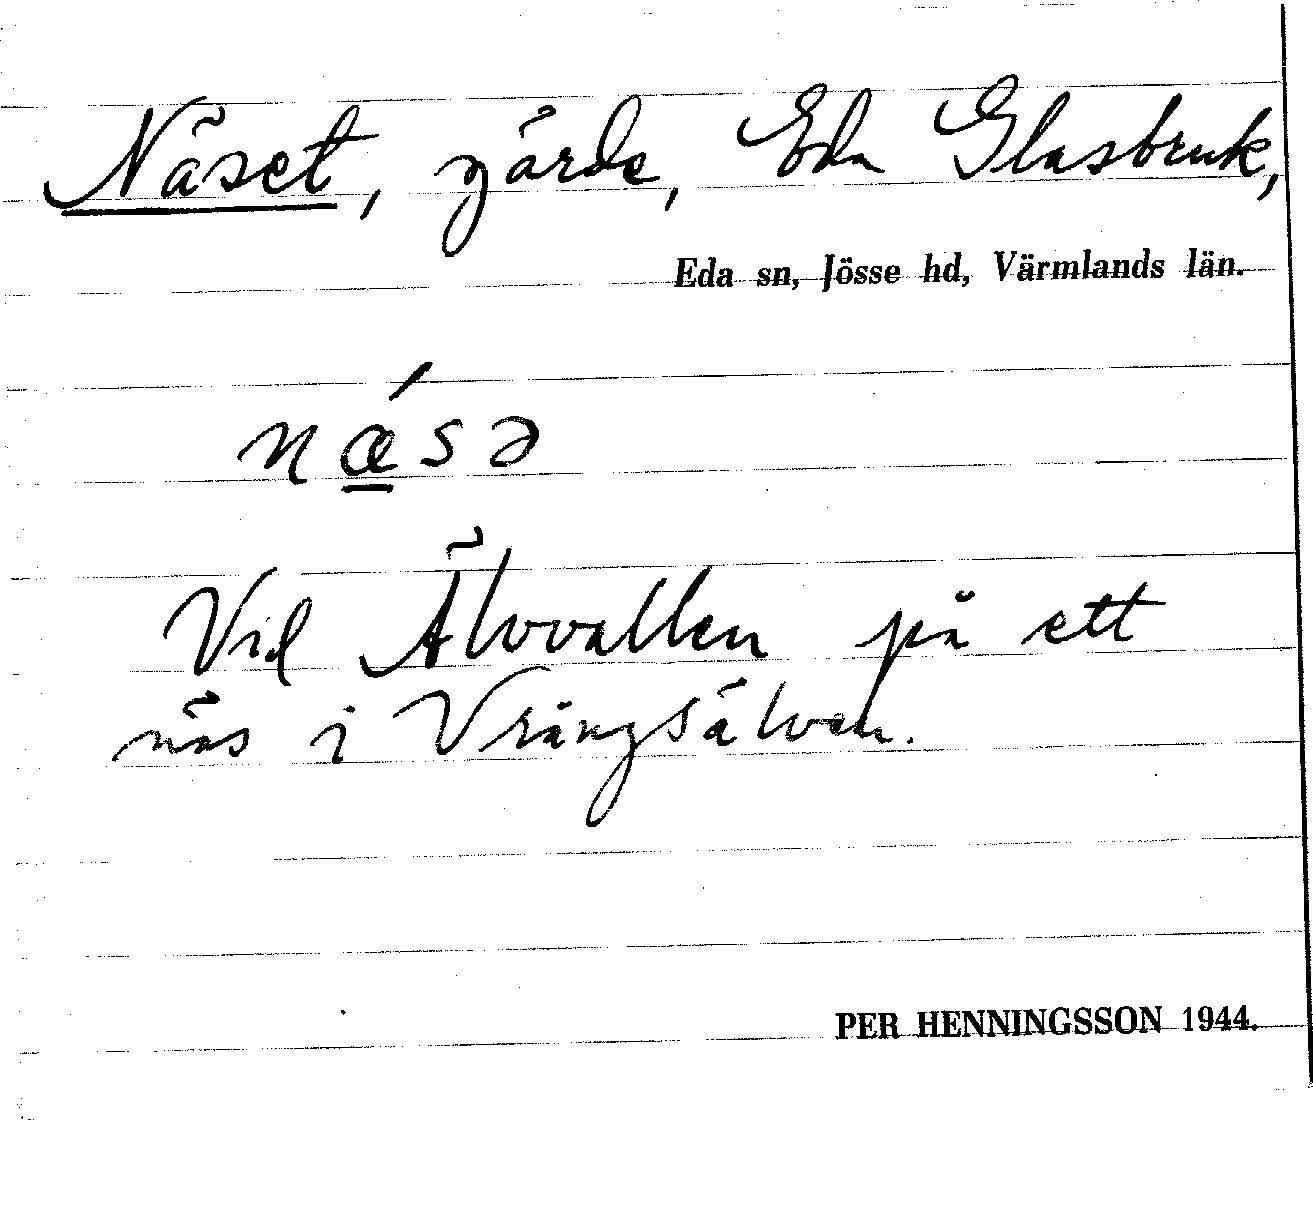 Näset, gärde, Eda Glasbruk,
Eda sn, Jösse hd, Värmlands län.
nǽ̲sə
Vid Älvvallen på ett
näs i Vrängsälven.
PER HENNINGSSON 1944.